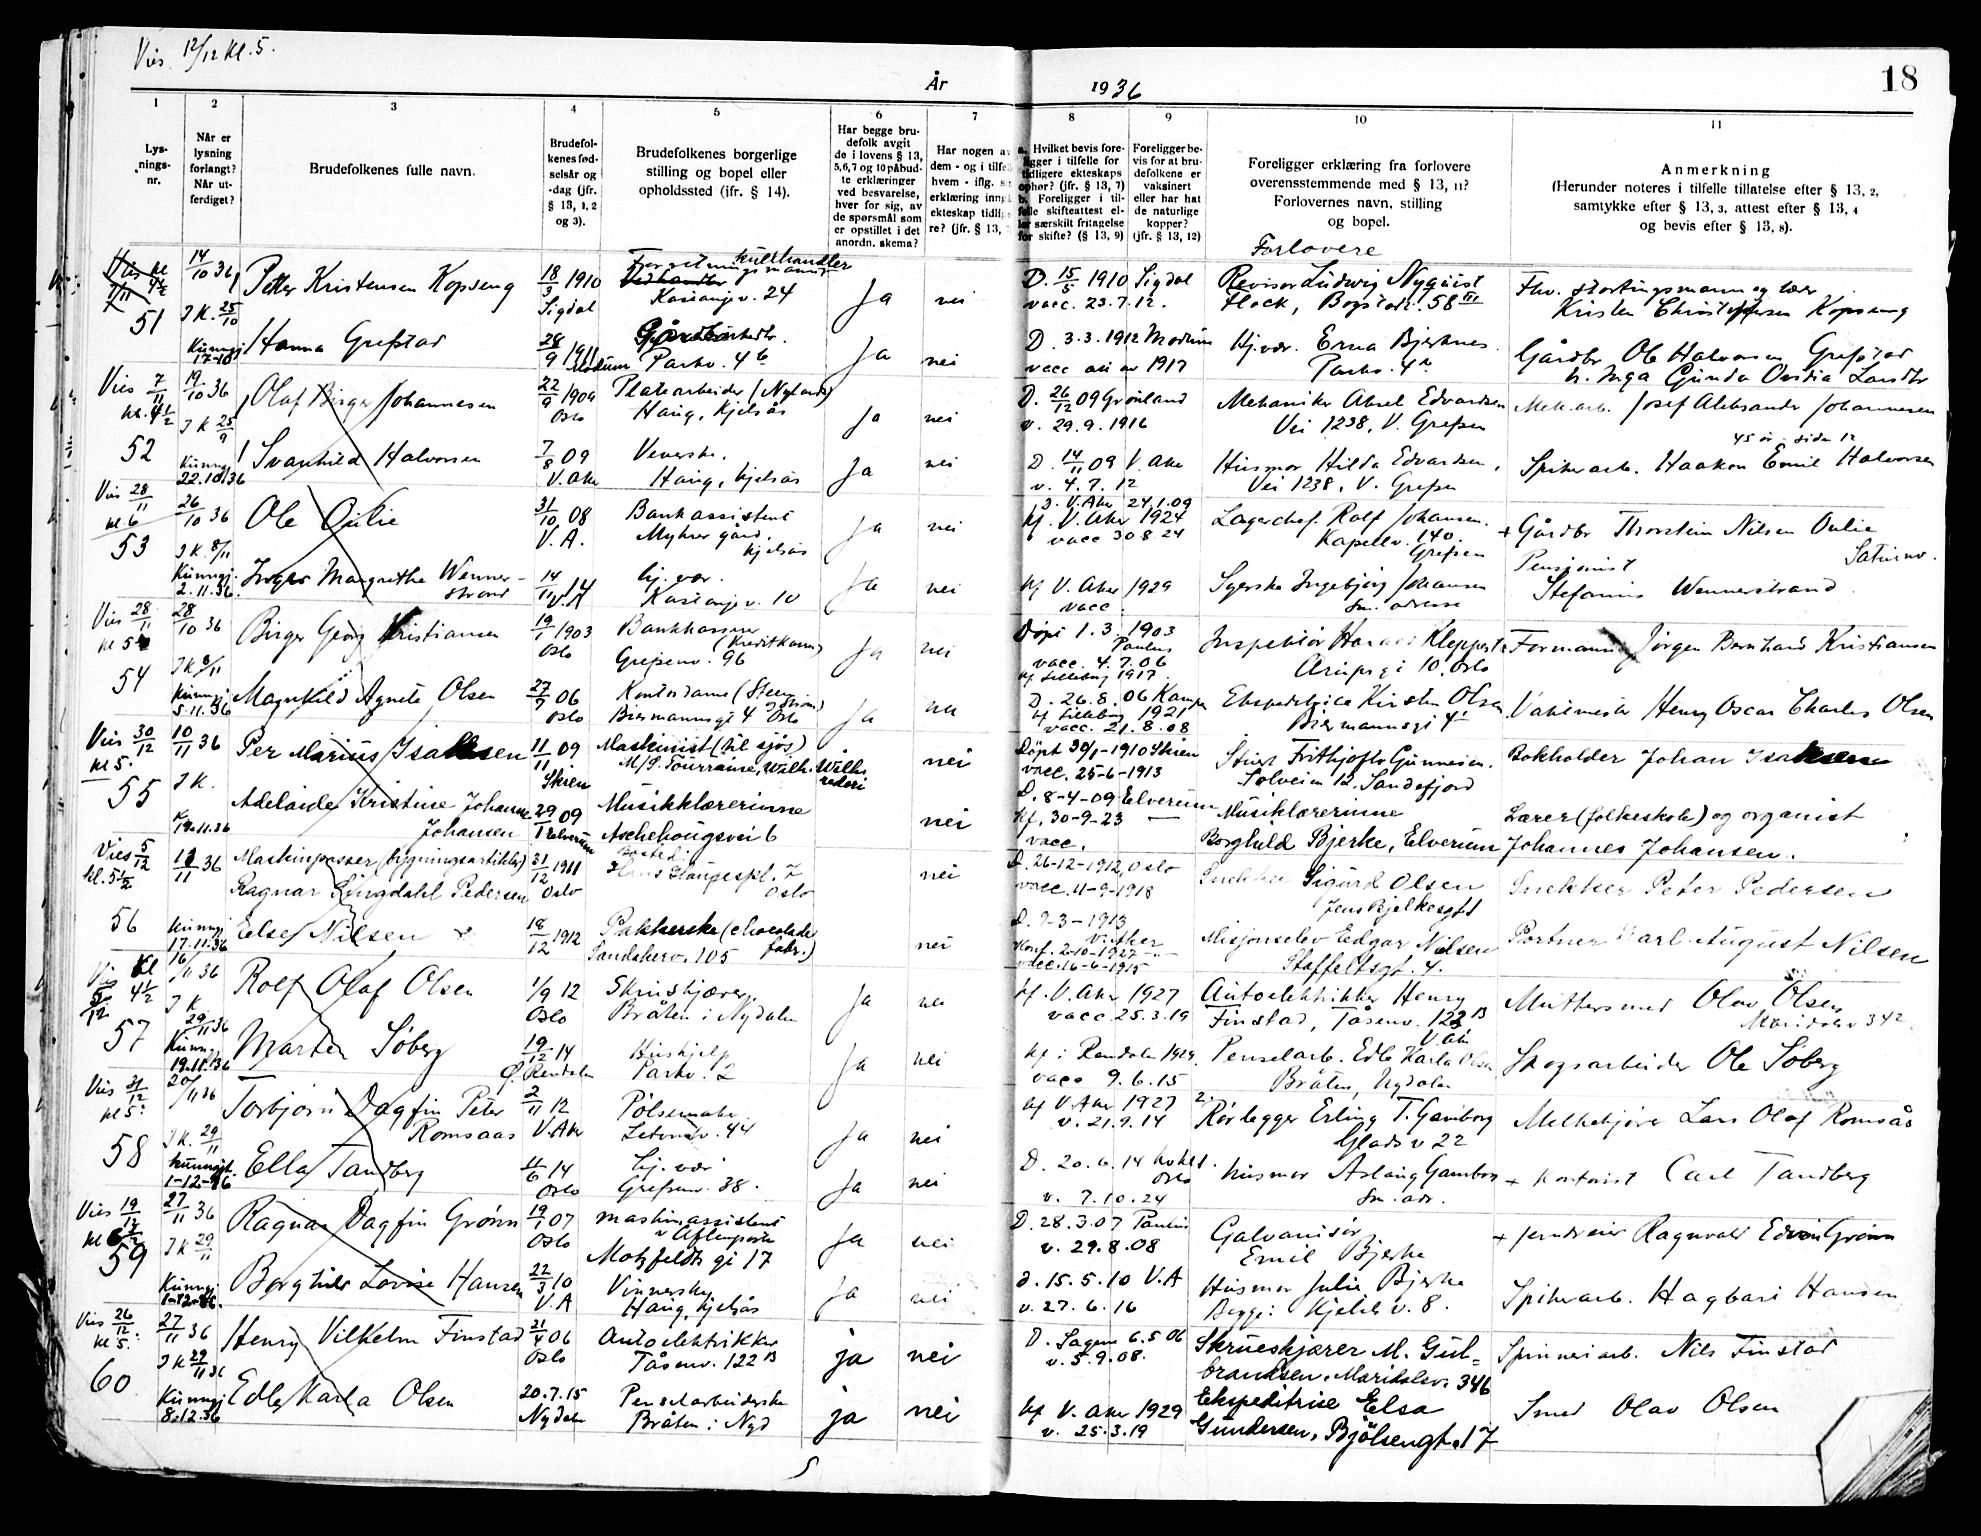 Vies 12/12 kl. 5.
År 1936
18
1 2 3 4 5 6 7 8 9 10 11
Lysnings-nr.
Når er lysning forlangt? Når ut-ferdiget?
Brudefolkenes fulle navn.
Brudefol-kenes fød-selsår og -dag (jfr. § 13, 1, 2 og 3).
Brudefolkenes borgerlige stilling og bopel eller opholdssted (ifr. § 14).
Har begge bru-defolk avgit de i lovens § 13, 5,6,7 og 10 påbud-te erklæringer ved besvarelse, hver for sig, av de spørsmål som er opstillet i det anordn. skema?
Har nogen av dem - og i tilfe hvem - iflg. erklæring inng ekteskap tidlig re? (jfr. § 13,
a. Hvilket bevis fore-ligger i tilfelle for tidligere ekteskaps ophør? (jfr. § 13, 7) b. Foreligger i til-felle skifteattest el-ler særskilt fritagelse for skifte? (§ 13, 9)
Foreligger be-vis for at bru-defolkene er vaksinert eller har hat de naturlige kopper? (jfr. § 13, 12)
Foreligger erklæring fra forlovere overensstemmende med § 13, 11? Forlovernes navn, stilling og bopel.
Anmerkning (Herunder noteres i tilfelle tillatelse efter § 13, 2, samtykke efter § 13, 3, attest efter § 13, 4 og bevis efter § 13, 8).
Forlovere
51
14/10 36
J K. 25/10
Kunngj 17-10
Petter Kristensen Kopseng
18/3 1910 Sigdal
kulthandler
Kastanjev. 24
Ja nei
D. 15/5 1910 Sigdal
vacc. 23.7.12.
Revisor Ludwig Nyquist
Flock, Bogstadv. 58 III
Fhv. stortingsmann og lærer
Kristen Christophersen Kopseng
Hanna Grefstad
28/9 1911 Modum
Parkv. 4b
Ja nei
D. 3.3.1912 Modum
vacc 1917
Hj.vær. Erna Bjerknes.
Parkv. 4
Gårdbr Ole Halvorsen Grefstad
52
Vies 7/11 kl. 4 1/2
19/10 36
J K 25/9
Kunngj 22.10.36
Olaf Birger Johannesen
22/9 1909 Oslo
Platearbeider (Nylands)
Haug, Kjelsås
Ja nei
D. 26/12 09 Grønland
v. 29.9.1916
Mekaniker Aksel Edvardsen
Vei 1238, V. Grefsen
Mek.arb. Josef Aleksander Johannesen
45 år, siden 12
Svanhild Halvorsen
7/8 09 V. Aker
Veverske.
Haug, Kjelsås
Ja nei
D. 14/11 09 V. Aker
v. 4.7.12
Husmor Hilda Edvardsen,
Vei 1238, V. Grefsen
Spikerarb. Haakon Emil Halvorsen
53
Vies 28/11 kl. 6
26/10 36
J K. 8/11
Kunngj. 2.11.36
Ole Oulie
31/10 08 V. A.
Bankassistent
Myhrer gård, Kjelsås
Ja nei
D. V. Aker 24.1.09
kf. V. Aker 1924
vacc 30.8.24
Lagerchef Rolf Johansen.
Kapellv. 140. Grefsen
+ Gårdbr Thorstein Nilsen Oulie
Inger Margrethe Wenner-strand
14/11 14 V.A
hj. vær.
Kastanjev. 10
Ja nei
kf V. Aker 1929
vacc
Syerske Ingebjørg Johansen
Sm. adresse
Pensjonist
Stefanus Wennerstrand
54
Vies 28/11 kl 5
28/10 36
J K 8/11
Kunngj. 5.11.36
Birger Georg Kristiansen
19/1 1903 Oslo
Bankkasserer (Kreditkassen)
Grefsenv. 96
Ja nei
Døpt 1.3.1903 Paulus
vacc. 4.7.06
kf. Lilleborg 1917.
Arupsgt 10. Oslo
Formann Jørgen Bernhard Kristiansen
Magnhild Agnete Olsen
27/7 06 Oslo
Kontordame (Steen & Strøm)
Biermannsgt 4 Oslo
Ja nei
D. 26.8.06 Kampen
kf Lilleborg 1921
vacc. 21.8.08
Ekspeditrice Kirsten Olsen
Biermannsgt 4
Vaktmester Henry Oscar Charles Olsen
55
Vies 30/12 kl 5.
10/11 36
J K.
K 19.11.36
Per Marius Isaksen
11/11 09 Skien
Maskinist (til sjøs)
M/S. Tourraine, Wilh. Wilhs. rederi
nei
Døpt 30/1-1910 Skien
vacc. 25-6-1913
Solveien 12, Sandefjord
Bokholder Johan Isaksen
Adelaide Kristine Johanne Johansen
29/1 09 Elverum
Musikklærerinne
Aschehougsvei 6
nei
D. 8-4-09 Elverum
kf. 30-9-23 —
vacc.
Musiklærerinne
Borghild Bjerke, Elverum
Lærer (folkeskole) og organist
Johannes Johansen.
56
Vies 5/12 kl. 5 1/2
11/11 36
Kunngj 17.11.36
Maskinpasser (bygningsartikler)
Ragnar Lingdahl Pedersen
31/12 1911 Oslo
Bosted:
Hans Haugespl. 7 Oslo
nei
D. 26-12-1912, Oslo
vacc. 11-9-1918
Snekker Sigurd Olsen
Jens Bjelkesgt
Snekker Peter Pedersen
Else Nilsen
18/12 1912
Pakkerske (chocolade fabr.)
Sandakerv. 105
nei
D. 9-3-1913 V. Aker
Konf. 2-10-1927 -"-
vacc. 16-6-1915
Misjonselev Edgar Nilsen
Staffeldtsgt. 4.
Portner Karl August Nilsen
57
Vies 5/12 kl 4 1/2
16/11 36
J K. 29/11 36
Kunng. 19.11.36
Rolf Olaf Olsen
1/9 12 Oslo
Skruskjærer,
Bråten i Nydalen
Ja nei
kf. V. Aker 1927
vacc 25.3.19
Autoelektrikker Henry
Finstad, Tåsenv. 122 B V. Ak
Muttersmed Olav Olsen
Maridalsv 342
Marten Søberg
19/12 14 Ø. Rendalen
Hushjelp
Parkv. 2
Ja nei
kf. i Rendalen 1929.
vacc 9.6.15
Penselarb. Edle Karla Olsen
Bråten, Nydalen
Skogsarbeider Ole Søberg
58
Vies 31/12 kl 5.
20/11 36
J K. 29/11
Kunngjt. 1-12-36
Torbjørn Dagfin Peter Romsaas
2/11 12 V. Aker
Pølsemaker
44
Ja nei
kf V. Aker 1927
v. 21.9.14
Rørlegger Erling T. Gamborg
Glads v 22
Melkekjører Lars Olaf Romsås
Ella Tandberg
11/6 14 Oslo
hj. vær
Grefsenv. 38.
Ja nei
D. 20.6.14 Oslo
v. 7.10.24
Husmor Aslaug Gamborg
Sm. adr.
+ Kontorist Carl Tandberg
59
Vies 19/12 kl 6 1/2
27/11 36
J K 29/11
Kunngj 1-12-36.
Ragnar Dagfin Grønn
19/1 07 Oslo
maskinassistent
v Aftenposten
Motzfeldts gt 17
Ja nei
D. 28.3.07 Paulus
v. 29.8.08
Galvanisør
Emil Bjerke
+ Jerndreier Ragnvald Edvin Grønn
Borghild Lovise Hansen
22/3 10 V. A
Vinnerske
Haug, Kjelsås
Ja nei
d. 15.5.10 V.A
v. 27.6.16
Husmor Julie Bjerke
Begge: Kjelds v. 8.
Spikerarb. Hagbart Hansen
60
Vies 26/12 kl 5.
27/11 36
J K 29/11 36
Kunngj 8.12.36
Henry Vilhelm Finstad
21/4 06 Oslo
Autoelektrikker
Tåsenv. 122 B
ja nei
D. Sagene 6.5 06
v. 5.9.08.
Skrueskjærer M. Gul-
brandsen, Maridalsv. 346
Spinneriarb. Nils Finstad
Edle Karla Olsen
20.7.15 Nydalen
Penselarbeiderske
Bråten i Nyd
ja nei
kf V. Aker 1929
v. 25.3.19
Ekspeditrise Elsa
Gundersen, Bjølsengt. 17
Smed Olav Olsen